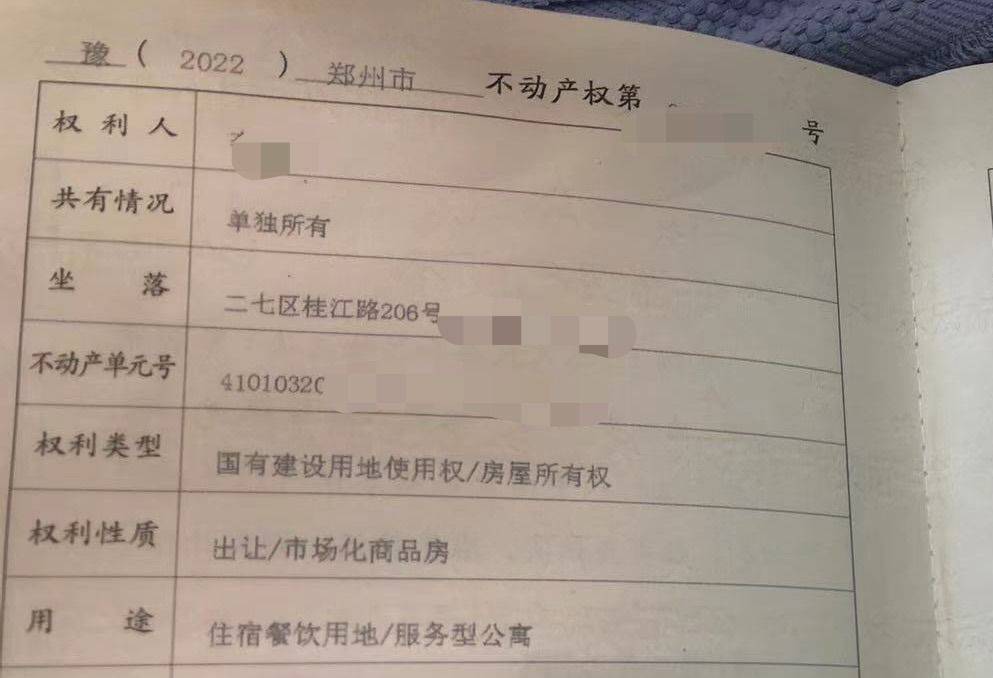 豫（2022）郑州市 不动产权第 号
权利人
共有情况 单独所有
坐落 二七区桂江路206号
不动产单元号 4101032
权利类型 国有建设用地使用权/房屋所有权
权利性质 出让/市场化商品房
用途 住宿餐饮用地/服务型公寓